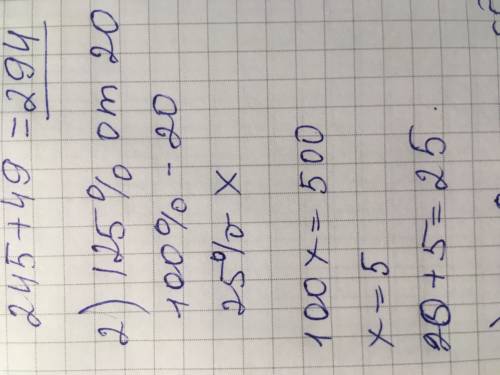 245+49 =294
2) 125% от 20
100% - 20
25% x
100x = 500
x = 5
20+5=25.